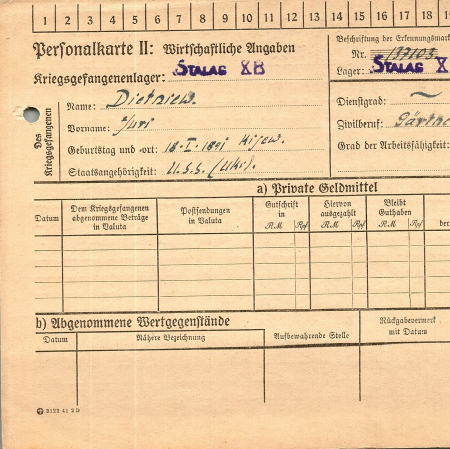 1 2 3 4 5 6 7 8 9 10 11 12 13 14 15 16 17 18 19
Personalkarte II: Wirtschaftliche Angaben
Beschriftung der Erkennungsmark
Nr. 137103
Kriegsgefangenenlager: STALAG XB
Lager: STALAG X
Des Kriegsgefangenen
Name:
Vorname: Juri
Geburtstag und -ort: 18-I-1891 Kijew.
Staatsangehörigkeit: U.S.S. (Ukr).
Dienstgrad: —
Zivilberuf: Gärtne
Grad der Arbeitsfähigkeit:
a) Private Geldmittel
Datum
Dem Kriegsgefangenen abgenommene Beträge in Valuta
Postsendungen in Valuta
Gutschrift in
RM Rpf
Hiervon ausgezahlt
RM Rpf
Bleibt Guthaben
RM Rpf
ber
b) Abgenommene Wertgegenstände
Datum
Nähere Bezeichnung
Aufbewahrende Stelle
Rückgabevermerk mit Datum
3122 41 2 D